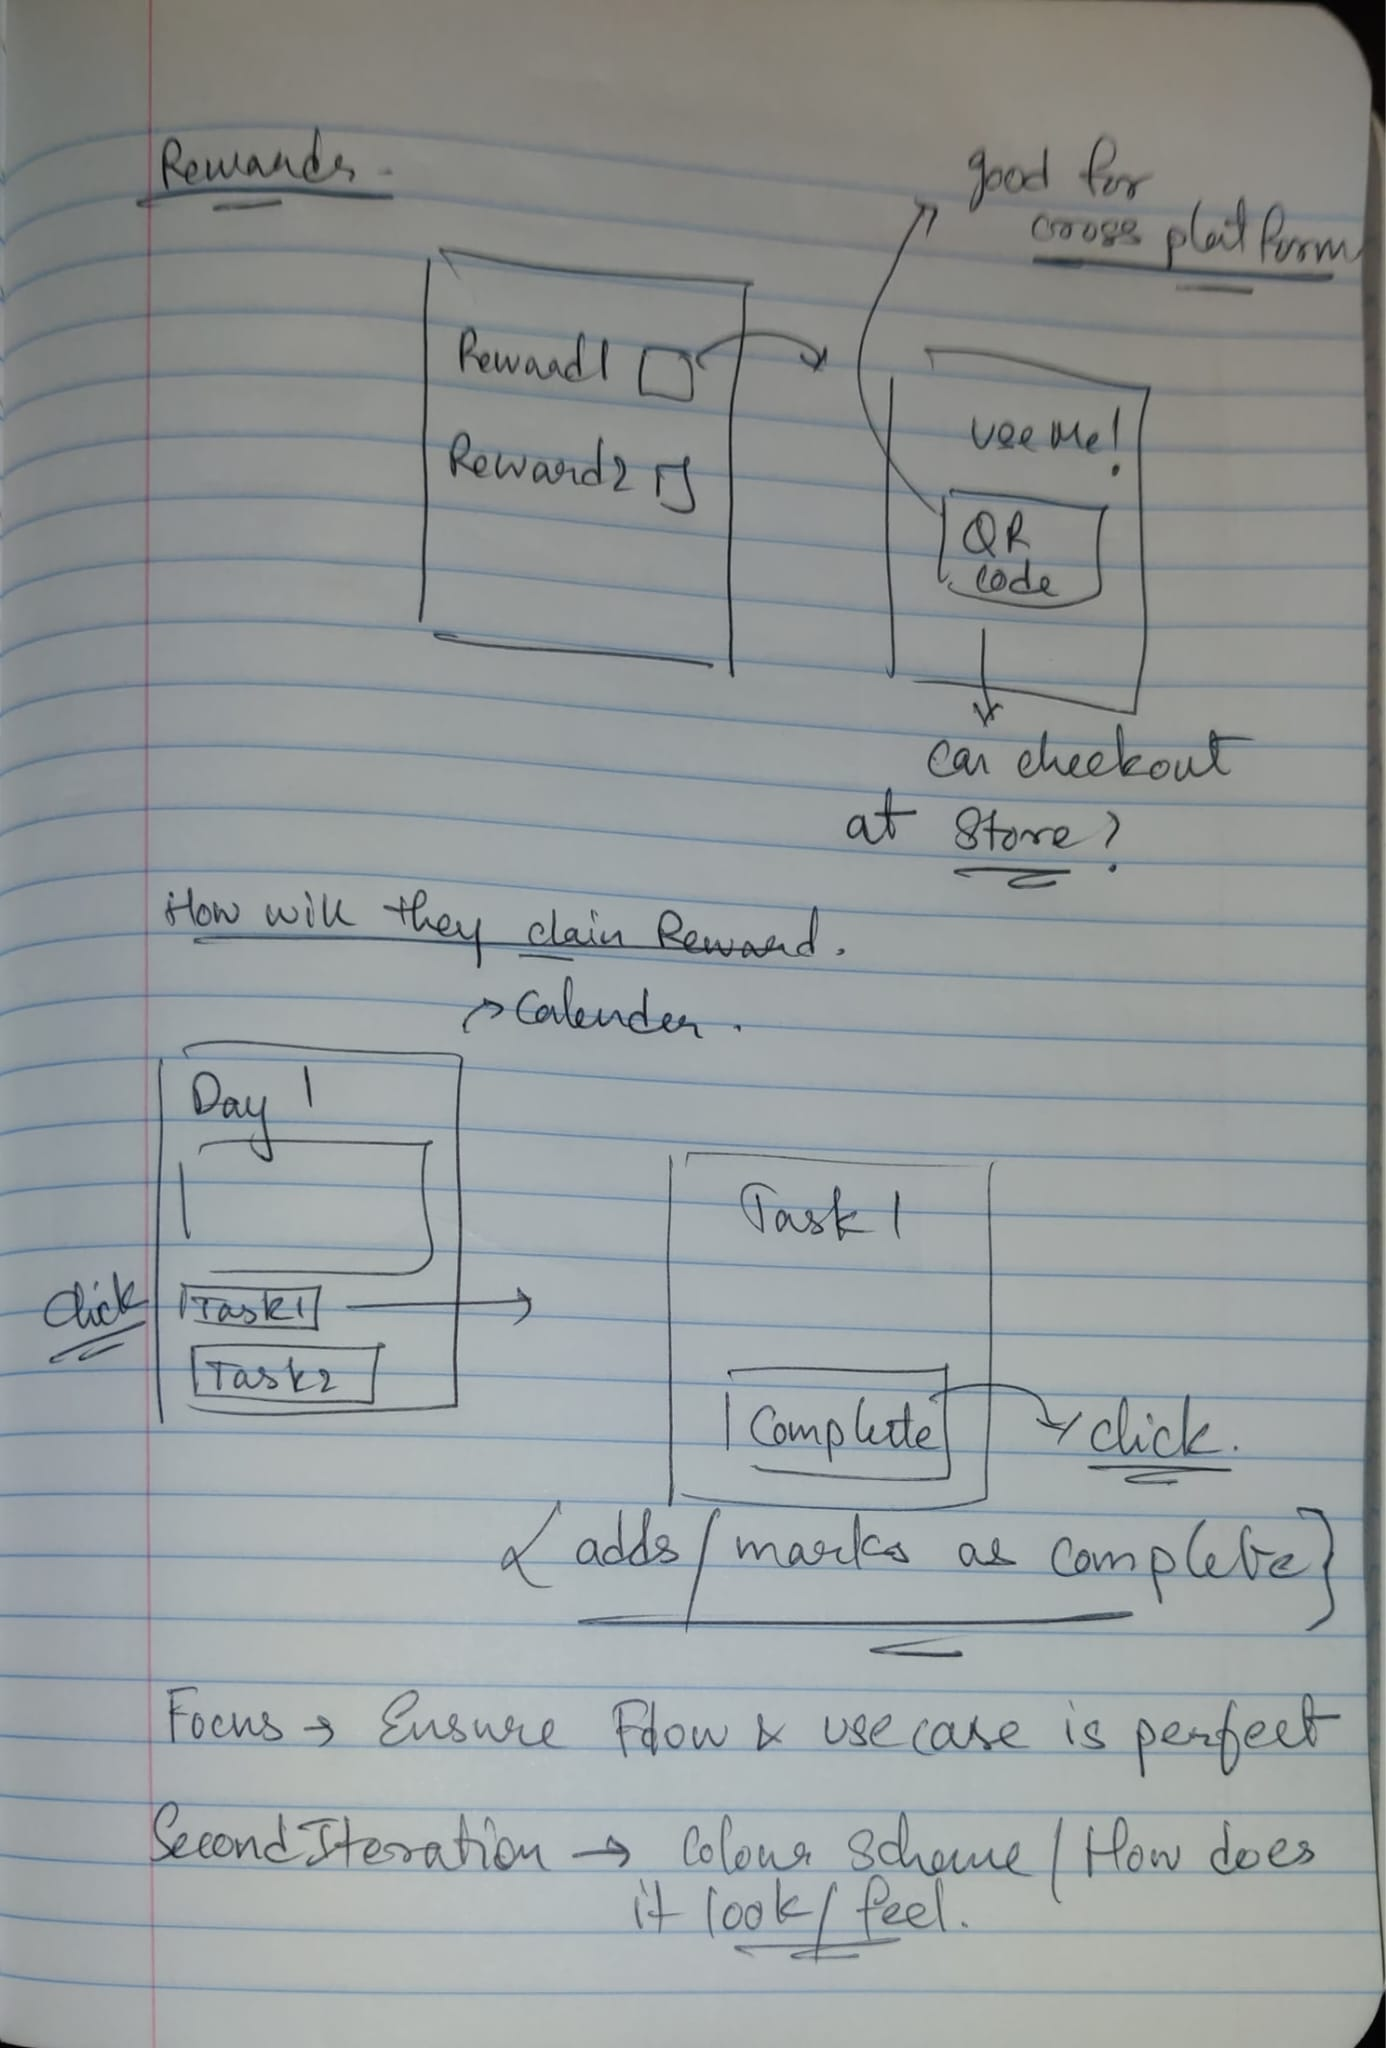 Rewards.
good for
cross platform
Reward 1
Reward 2
Use Me!
QR
code
can checkout
at store?
How will they claim Reward.
Calender.
Day 1
Click
Task 1
Task 2
Task 1
Complete
click.
adds / marks as complete}
Focus → Ensure Flow & use case is perfect
Second Iteration → Colour Scheme / How does
it look / feel.